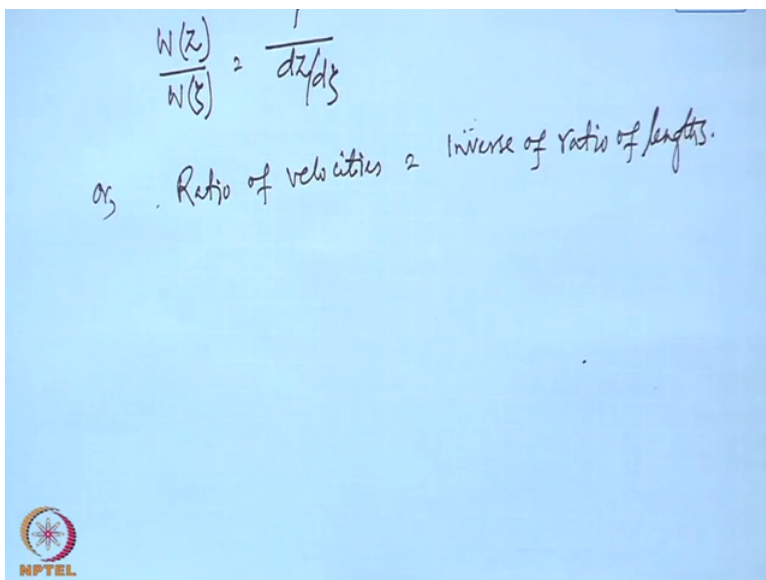 W(z)/W(ζ) = 1/(dz/dζ)
or, Ratio of velocities = Inverse of ratio of lengths.
NPTEL